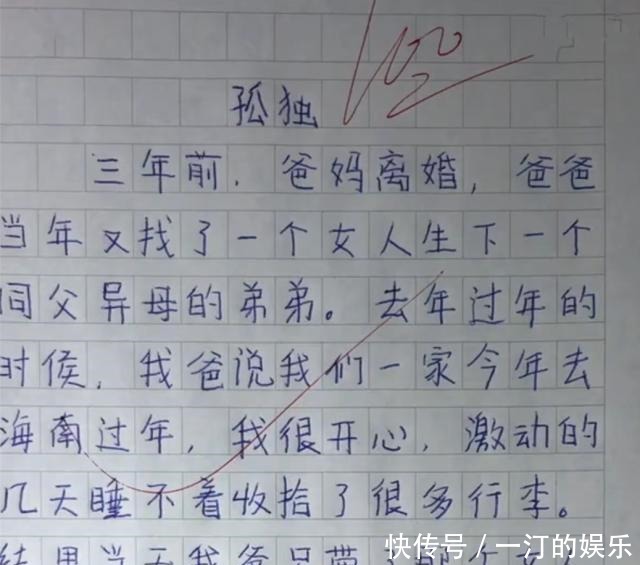 100
孤独
三年前，爸妈离婚，爸爸
当年又找了一个女人生下一个
同父异母的弟弟。去年过年的
时候，我爸说我们一家今年去
海南过年，我很开心，激动的
几天睡不着收拾了很多行李。
结果当天我爸只带了那个女人
快传号／一汀的娱乐